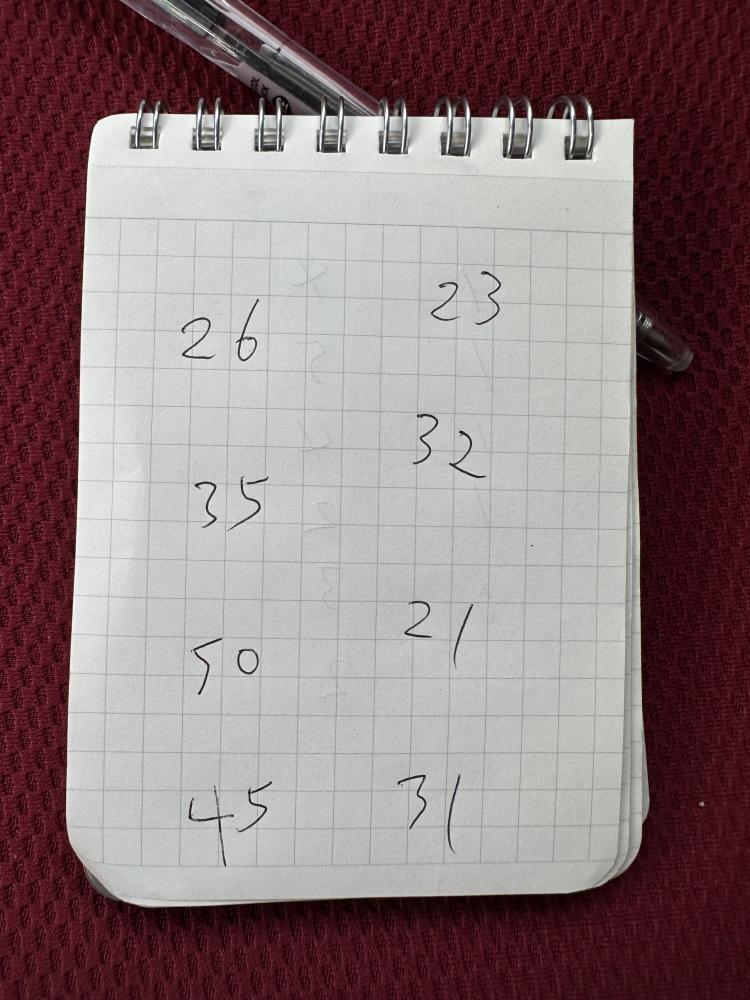 26 23
35 32
50 21
45 31